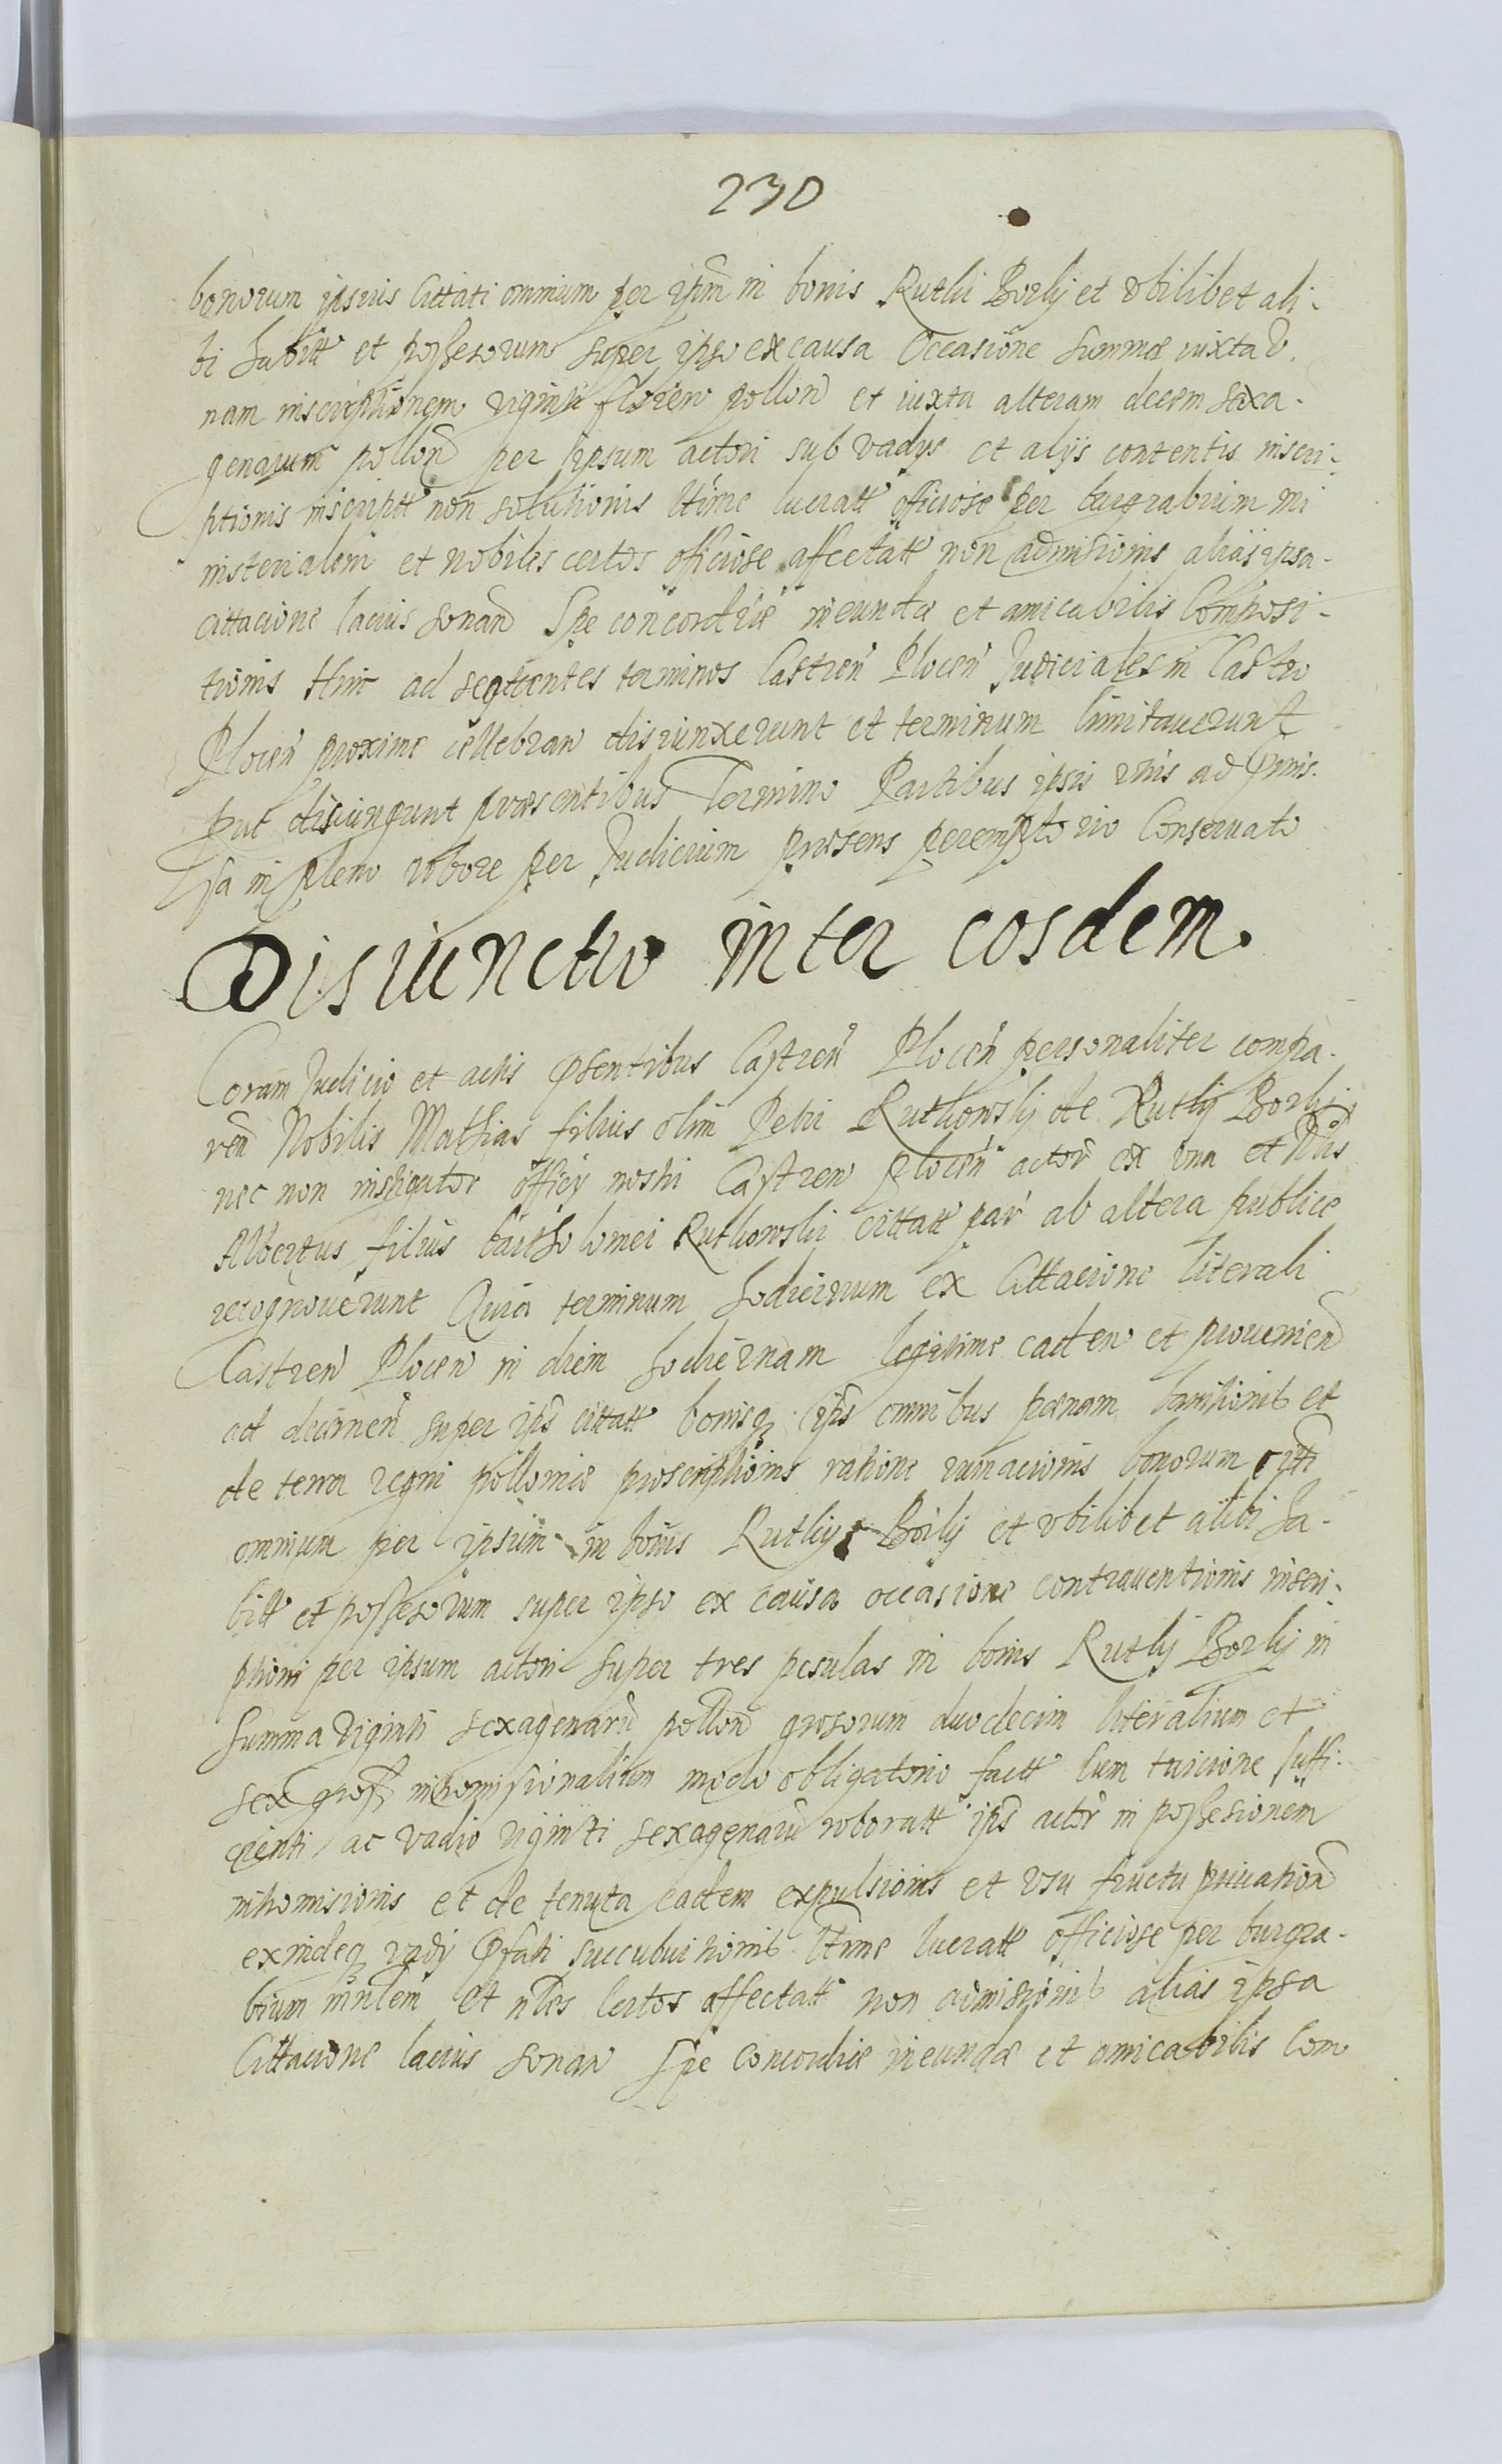 230
bonorum ipsius Cittati omnium per ipm in bonis Rutki Borky et vbilibet ali-
bi habitt et possesorum super ipso ex causa Occasione summæ iuxta v
nam inscriptionem viginti floren pollon et iuxta alteram decem sexa-
genarum pollon per ipsum actori sub vadys et alijs contentis inscri-
ptionis inscriptt non solutionis Itime lucratt officiose per burgrabium mi
nisterialem et nobiles certos officiose affectatt non admisionis alias ipsa
cittacione lacius sonan Spe concordiæ ineundæ et amicabilis Composi-
tionis Hinc ad sequentes terminos Castren Plocen Judiciales in Castro
Plocen proxime cellebran disiunxerunt et terminum limitauerunt
put disiungunt præsentibus Termino Partibus ipsis vtris ad pmis-
sa in pleno robore per Judicium præsens peremptorio Conseruato
Disiunctio inter eosdem.
Coram Judicio et actis pſentibus Castren Plocen personaliter compa-
ren Nobilis Mathias filius olim Petri Rutkowsky de Rutky Borky
nec non instigator officy nostri Castren Plocen actor ex vna et Nlis
Albertus filius bartholomei Rutkowski cittatt par ab altera publice
recognouerunt Quia terminum hodiernum ex Cittacione literali
Castren Plocen in diem hodiernam legitime caden et prouenien
ad decernen super ips cittatt bonisq ips omnibus pænam bannionis et
de terra regni polloniæ proscriptionis ratione ruinacionis bonorum citti
omnium per ipsum in bonis Rutky Borky et vbilibet alibi ha-
bitt et possesorum super ipso ex causa occasione contrauentionis inscri-
ptioni per ipsum actori super tres pesulas in bonis Rutky Borky in
summa viginti sexagenaru pollon grosorum duodecim literalium et
sex gros intromisionalium modo obligatorio factt cum tuicione suffi-
cienti ac vadio viginti sexagenaru roboratt ips actor in possesionem
intromisionis et de tenuta eadem expulsionis et vsu fructu priuation
exindeq vady pfati succubuitionis Itime lucratt officiose per burgra-
bium mnlem et nles certos affectatt non admisionis alias ipsa
Cittacione lacius sonan Spe Concordiæ ineundæ et amicabilis Com